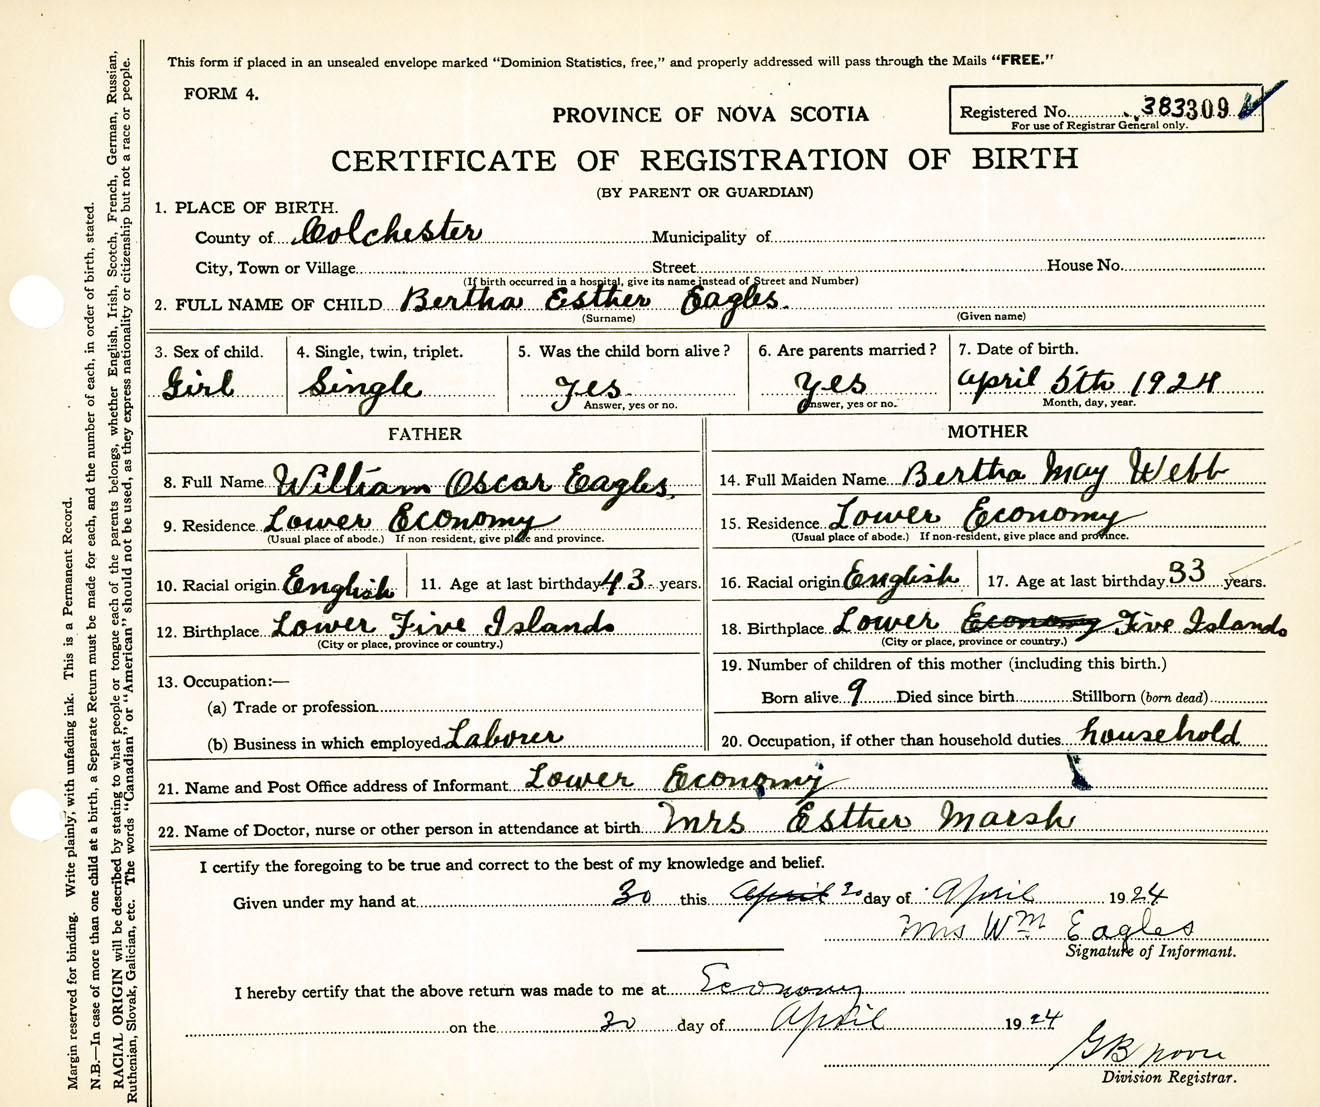 This form if placed in an unsealed envelope marked “Dominion Statistics, free,” and properly addressed will pass through the Mails “FREE.”
FORM 4.
PROVINCE OF NOVA SCOTIA
Registered No. 383309
For use of Registrar General only.
CERTIFICATE OF REGISTRATION OF BIRTH
(BY PARENT OR GUARDIAN)
1. PLACE OF BIRTH.
County of Colchester Municipality of
City, Town or Village Street House No.
(If birth occurred in a hospital, give its name instead of Street and Number)
2. FULL NAME OF CHILD Bertha Esther Eagles.
(Surname) (Given name)
3. Sex of child. 4. Single, twin, triplet. 5. Was the child born alive? 6. Are parents married? 7. Date of birth.
Girl Single Yes Yes April 5th 1924
Answer, yes or no. Answer, yes or no. Month, day, year.
FATHER
8. Full Name William Oscar Eagles.
9. Residence Lower Economy
(Usual place of abode.) If non-resident, give place and province.
10. Racial origin English 11. Age at last birthday 43 years.
12. Birthplace Lower Five Islands
(City or place, province or country.)
13. Occupation:—
(a) Trade or profession
(b) Business in which employed Laborer
MOTHER
14. Full Maiden Name Bertha May Webb
15. Residence Lower Economy
(Usual place of abode.) If non-resident, give place and province.
16. Racial origin English 17. Age at last birthday 33 years.
18. Birthplace Lower Economy Five Islands
(City or place, province or country.)
19. Number of children of this mother (including this birth.)
Born alive 9 Died since birth Stillborn (born dead)
20. Occupation, if other than household duties household
21. Name and Post Office address of Informant Lower Economy
22. Name of Doctor, nurse or other person in attendance at birth Mrs Esther Marsh
I certify the foregoing to be true and correct to the best of my knowledge and belief.
Given under my hand at 30 this April 30 day of April 1924
Mrs Wm Eagles
Signature of Informant.
I hereby certify that the above return was made to me at Economy
on the 30 day of April 1924
GB
Division Registrar.
Margin reserved for binding. Write plainly, with unfading ink. This is a Permanent Record.
N.B.—In case of more than one child at a birth, a Separate Return must be made for each, and the number of each, in order of birth, stated.
RACIAL ORIGIN will be described by stating to what people or tongue each of the parents belongs, whether English, Irish, Scotch, French, German, Russian,
Ruthenian, Slovak, Galician, etc. The words “Canadian” or “American” should not be used, as they express nationality or citizenship but not a race or people.